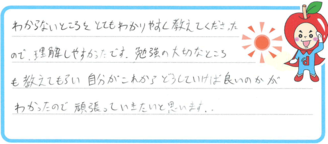 わからないところをとてもわかりやすく教えてくださった
ので、理解しやすかったです。勉強の大切なところ
も教えてもらい自分がこれからどうしていけば良いのかが
わかったので頑張っていきたいと思います。